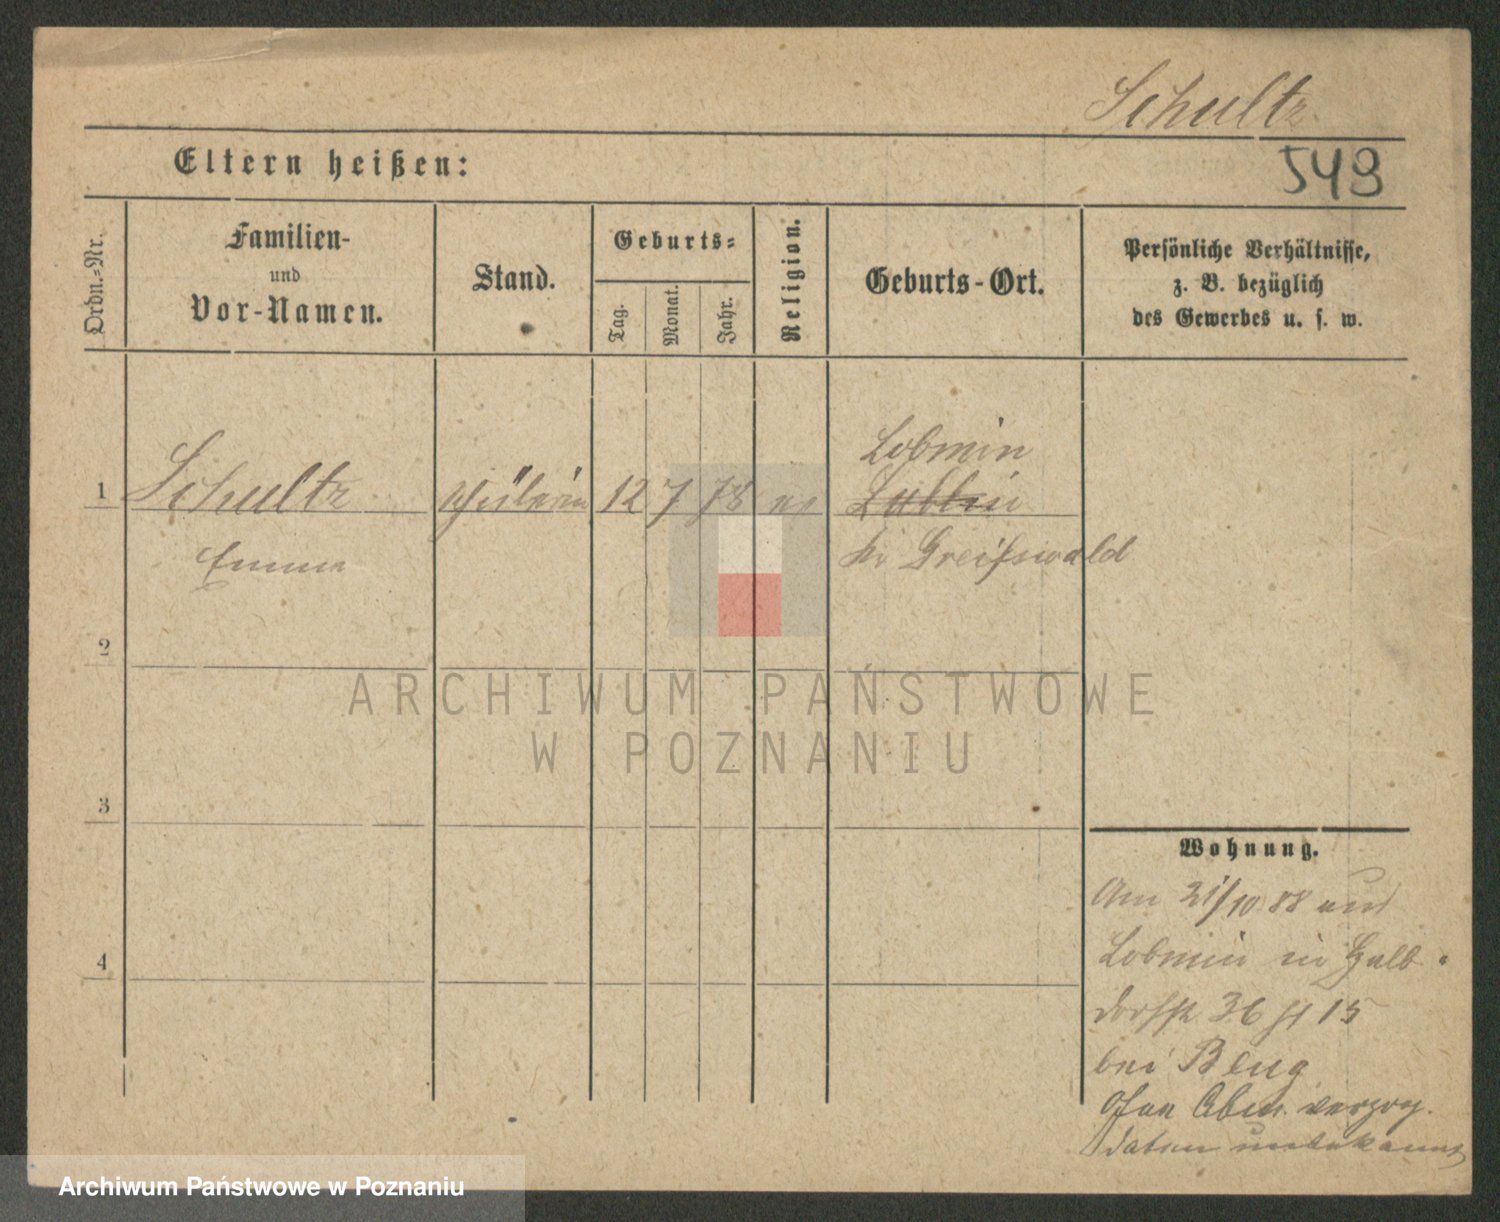 Schultz
Eltern heißen:
549
Ordn.-Nr.
Familien-
und
Vor-Namen.
Stand.
Geburts-
Tag.
Monat.
Jahr.
Religion.
Geburts-Ort.
Persönliche Verhältnisse,
z. B. bezüglich
des Gewerbes u. s. w.
1
Schultz
Schülerin
12
7
78
ev
Lobmin
Lubbin
Kr Greifswald
Emma
2
3
4
Wohnung.
Am 21/10 88 aus
Lobmin in Halb-
dorfst. 36 St 15
bei Bleug
Ohne Abm. verzog.
Datum unbekannt
ARCHIWUM PAŃSTWOWE
W POZNANIU
Archiwum Państwowe w Poznaniu